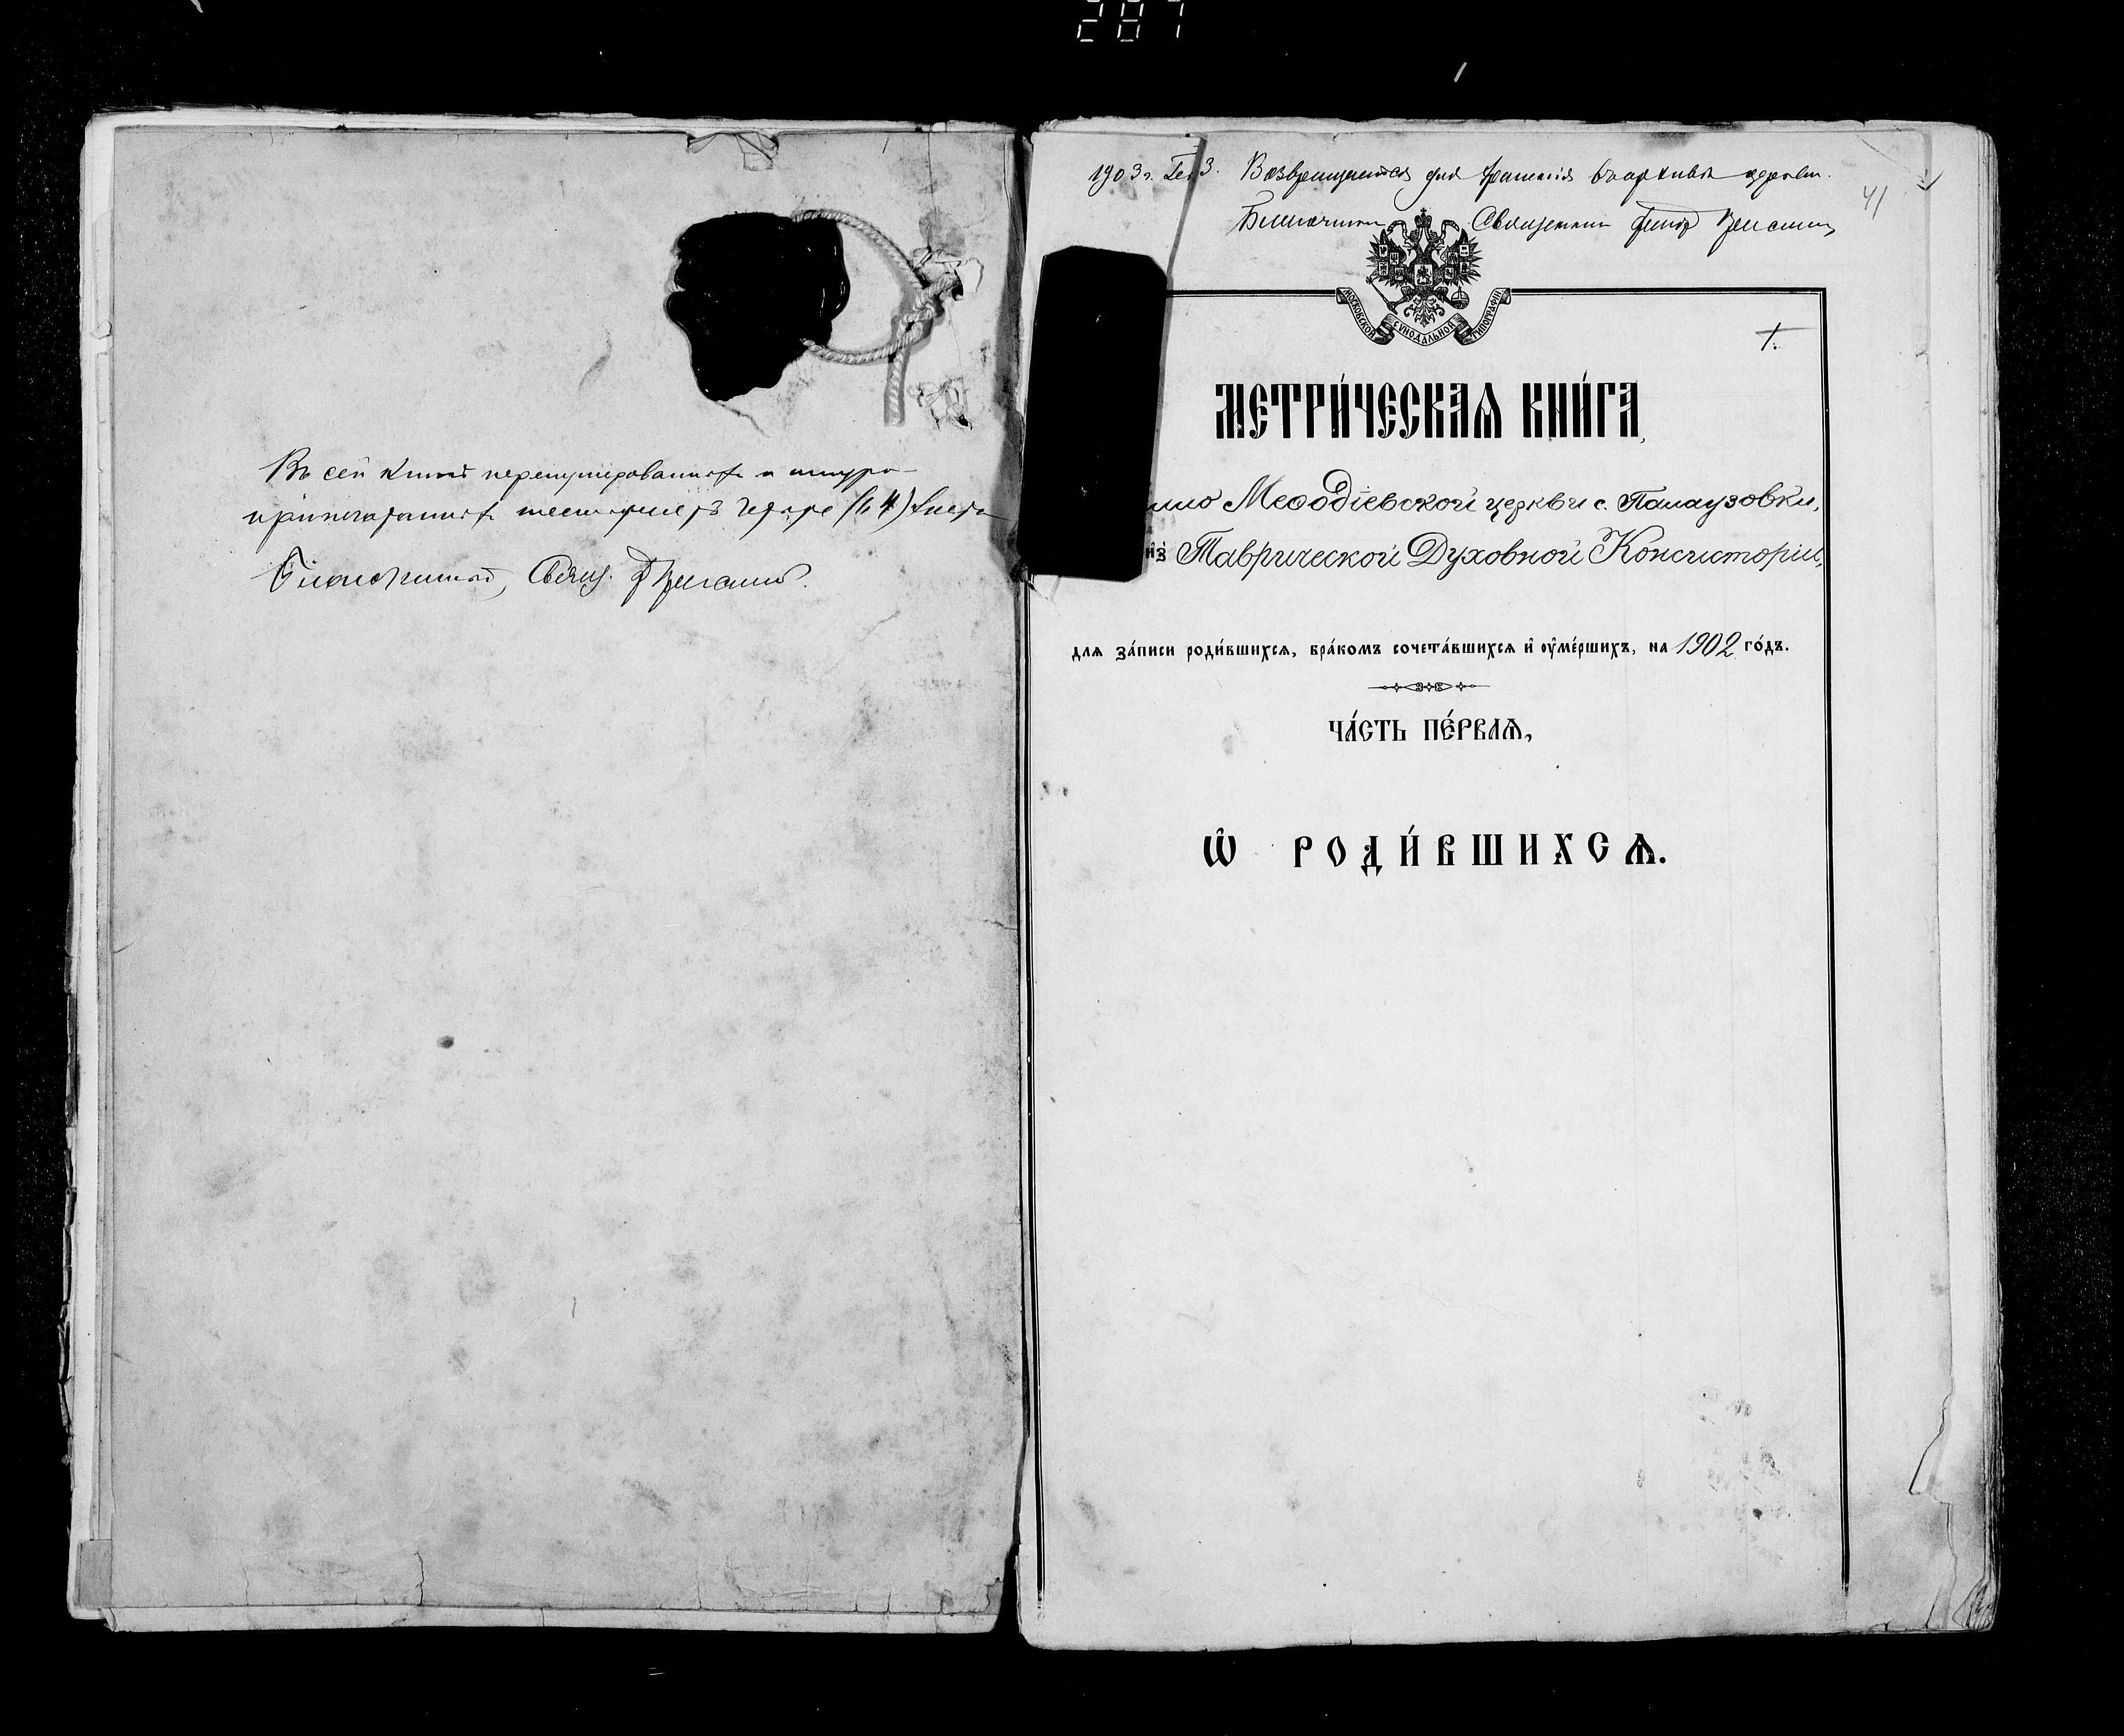 287
Въ сей книгѣ перенумерованныхъ и шнуро-
припечатанныхъ шестьдесятъ четыре (64) листа
Благочинный, Свящ.
1903 г. 3. Возвращается для храненія въ архивѣ церкви.
Благочинный Священникъ
41
МОСКОВСКОЙ СѴНОДАЛЬНОЙ ТИПОГРАФІИ
1.
МЕТРИ́ЧЕСКАѦ КНИ́ГА,
Меѳодіевской церкви с. Палаузовки,
и҆зъ Таврической Духовной Консисторіи,
для за́писи роди́вшихся, бра́комъ сочета́вшихся и҆ ᲂу҆ме́ршихъ, на 1902 го́дъ.
ЧА́СТЬ ПЕ́РВАѦ,
Ѡ҆ РОДИ́ВШИХСѦ.